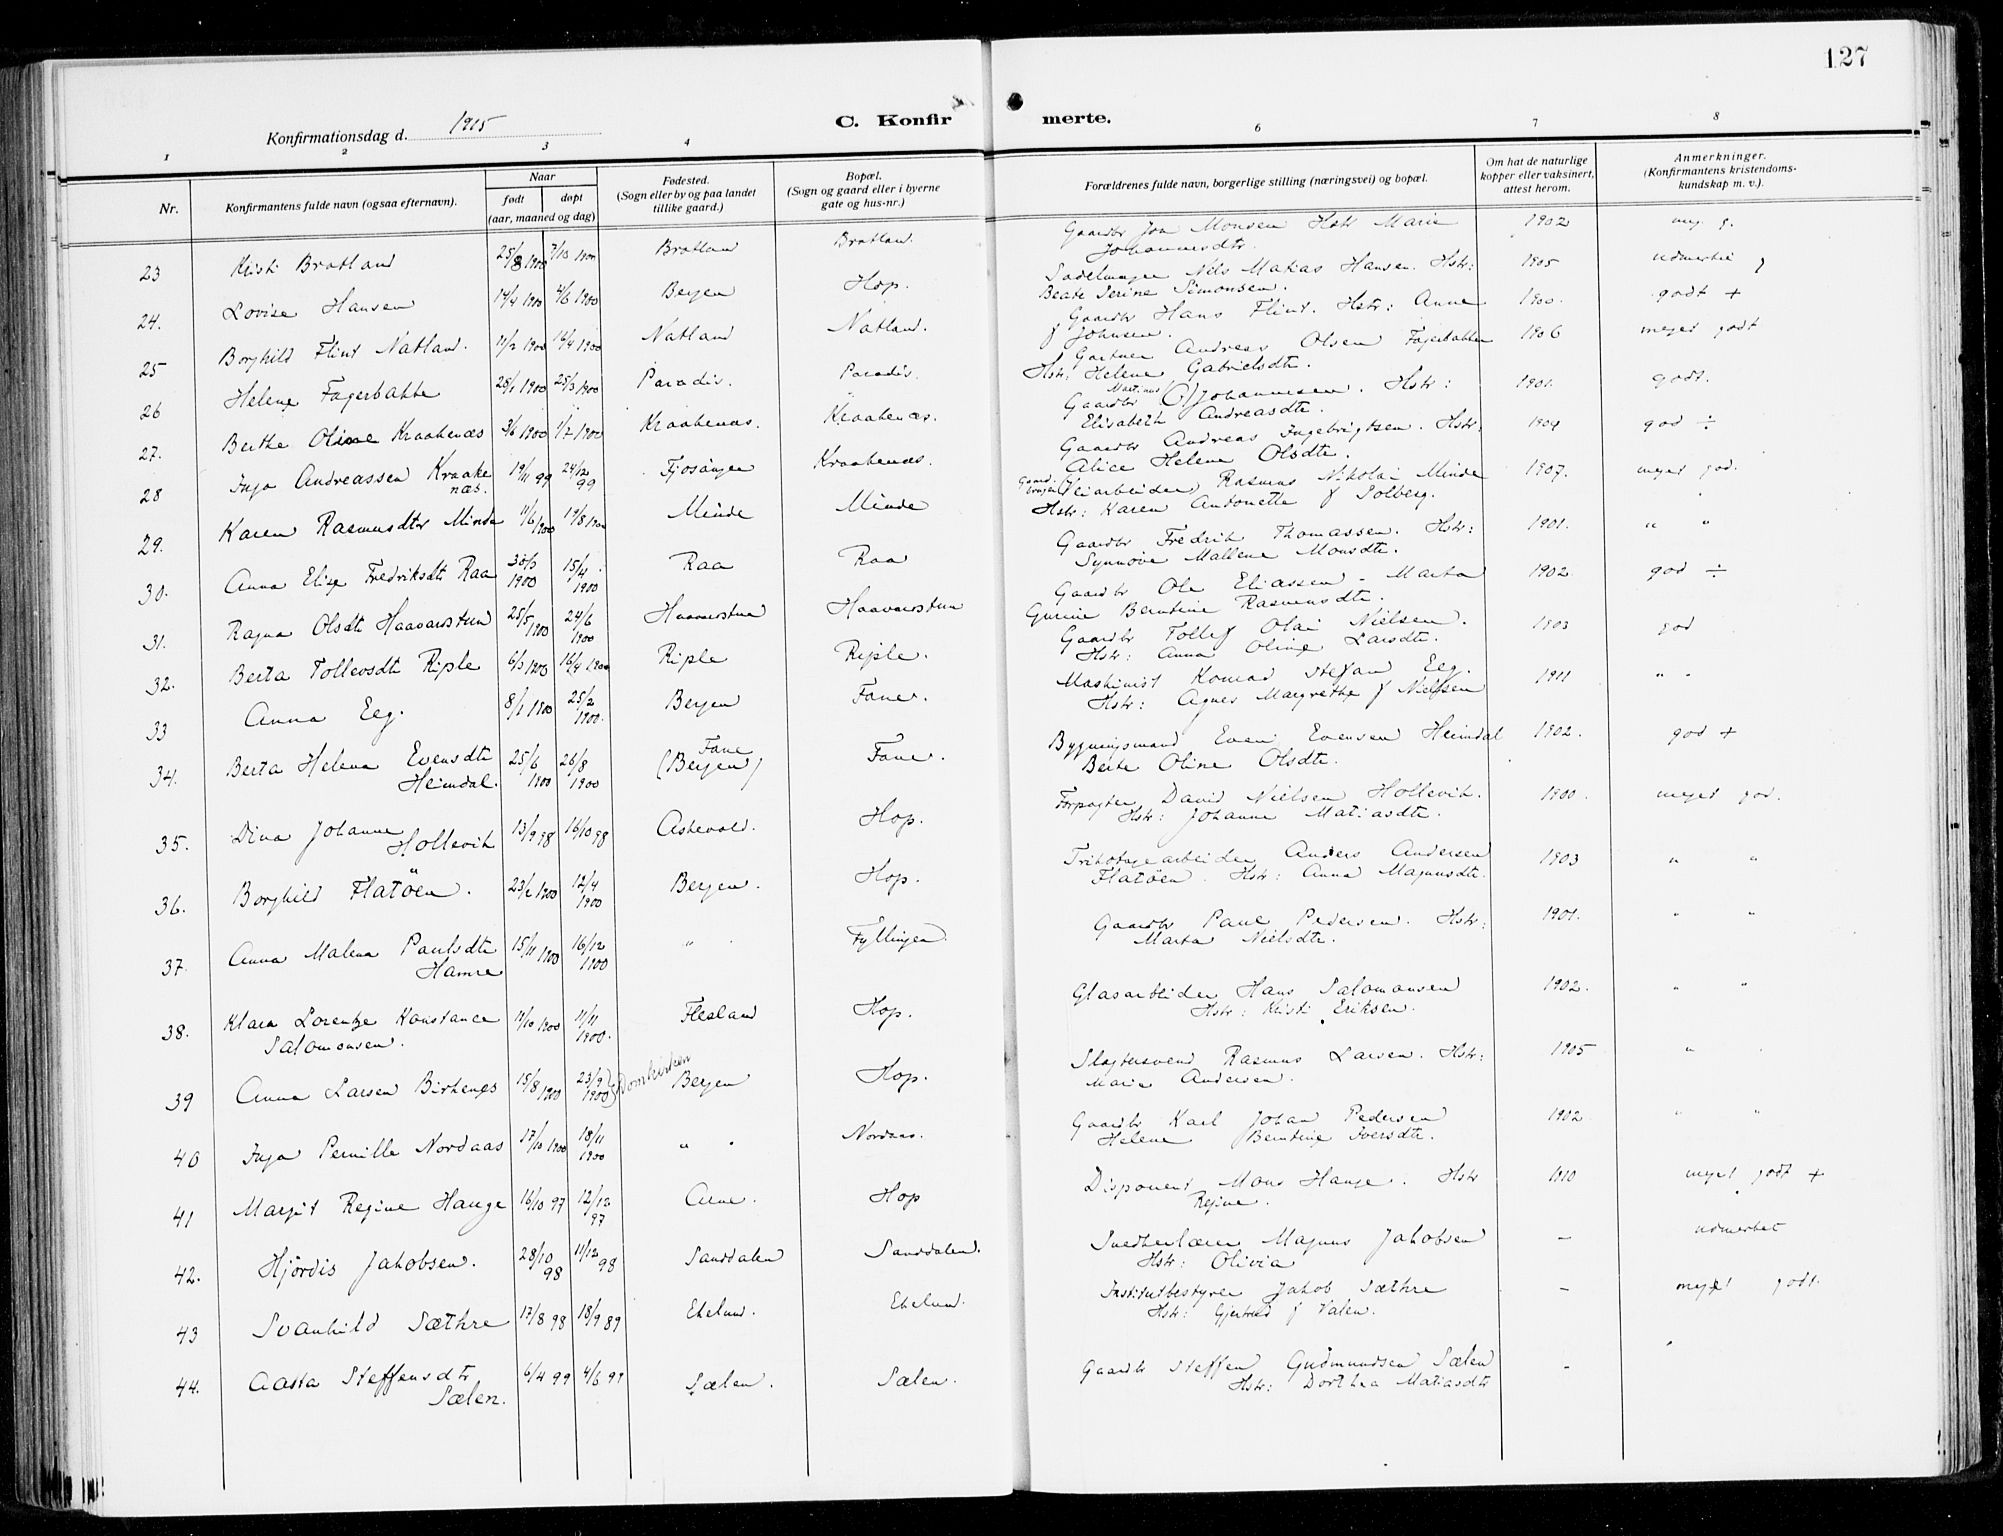 127
Konfirmationsdag d. 1915
C. Konfirmerte.
1 2 3 4 6 7 8
Nr.
Konfirmantens fulde navn (ogsaa efternavn).
Naar
født døpt
(aar, maaned og dag)
Fødested.
(Sogn eller by og paa landet
tillike gaard.)
Bopæl.
(Sogn og gaard eller i byerne
gate og hus-nr.)
Forældrenes fulde navn, borgerlige stilling (næringsvei) og bopæl.
Om hat de naturlige
kopper eller vaksinert,
attest herom.
Anmerkninger.
(Konfirmantens kristendoms-
kundskap m. v.).
23 Kristi Bratland 25/8 1900 7/10 1900 Bratland Bratland. Gaardbr Jon Monsen Hstr Marie 1902 meg. g.
Johannesdtr.
24. Lovise Hansen 14/4 1900 4/6 1900 Bergen Hop. Sadelmager Nils Matias Hansen. Hstr: 1905 udmerket
Beate Serine Simonsen.
25 Borghild Flint Natland. 11/2 1900 16/4 1900 Natland Natland. Gaardbr Hans Flint. Hstr: Anne 1900. godt +
f Johnsen.
26 Helene Fagerbakke 28/1 1900 25/3 1900 Paradis. Paradis. Gartner Andreas Olsen Fagerbakken 1906 meget godt
Hstr: Helene Gabrielsdtr.
27. Berthe Oline Kraakenæs 3/6 1900 1/7 1900 Kraakenæs. Kraakenæs. Gaardbr Martinus (O) Johannesen. Hstr: 1901. godt.
Elisabeth Andreasdtr.
28 Inga Andreassen Kraake 19/11 99 24/12 99 Fjøsanger Kraakenæs. Gaardbr Andreas Ingebrigtsen. Hstr: 1904 god ÷
næs. Alice Helene Olsdtr.
29. Karen Rasmusdtr Minde 11/6 1900 19/8 1900 Minde Minde Gaardbruger Veiarbeider Rasmus Nikolai Minde 1907. meget god.
Hstr: Karen Antonette f Solberg.
30. Anna Elise Fredriksdtr Raa 30/3 1900 15/4 1900 Raa Raa Gaardbr Fredrik Thomassen. Hstr: 1901. " "
Synnøve Mallene Monsdtr.
31. Ragna Olsdtr Haavardstun 25/5 1900 24/6 1900 Haavardstun Haavardstun Gaardbr Ole Eliassen - Marta 1902. god ÷
Gurine Berntine Rasmusdtr.
32. Berta Tollevsdtr Riple 6/3 1900 16/4 1900 Riple Riple. Gaardbr Tollef Olai Nielsen. 1903 god
Hstr: Anna Oline Larsdtr.
33 Anna Eeg. 8/1 1900 25/2 1900. Bergen Fane. Maskinist Konrad Stefan Eeg. 1911 " "
Hstr: Agnes Margrethe f Nielsen
34. Berta Helena Evensdtr 25/6 1900 26/8 1900 Fane (Bergen) Fane. Bygningsmand Even Evensen Heimdal 1902. god +
Heimdal. Berte Oline Olsdtr.
35. Dina Johanne 13/9 98 16/10 98 Askevold. Hop. Forpagter David Nielsen Hollevik. 1900. meget god.
Hollevik Hstr: Johanne Matiasdtr.
36. Borghild Flatöen. 23/2 1900 12/4 1900 Bergen. Hop. Trikotagearbeider Anders Andersen 1903 " "
Flatöen. Hstr: Anna Magnusdtr.
37. Anna Malena Paulsdtr 15/11 1900 16/12 1900 " Fyllingen. Gaardbr Paul Pedersen. Hstr: 1901. " "
Hamre Marta Nielsdtr.
38. Klara Lorentze Konstance 11/10 1900 11/11 1900. Flesland Hop. Glasarbeider Hans Salomonsen 1902. " "
Salomonsen. Hstr: Kristi Eriksen.
39 Anna Larsen Birkenes 15/8 1900 23/9 1900 Domkirken Bergen Hop. Slagtersvend Rasmus Larsen. Hstr: 1905 "
Marie Andersen.
40 Inga Pernille Nordaas 17/10 1900 18/11 1900 " Nordaas. Gaardbr Karl Johan Pedersen 1902 " "
Helene Berntine Iversdtr.
41 Margit Regine Hauge 16/10 97 12/12 97 Arne. Hop Disponent Mons Hauge. Hstr 1910 meget godt +
Regine.
42. Hjørdis Jakobsen. 28/10 98 11/12 98 Sanddalen Sanddalen. Snedkerlærer Magnus Jakobsen – udmerket
Hstr: Olivia
43 Svanhild Sæthre 17/8 98 18/9 89 Ekelund. Ekelund. Institutbestyrer Jakob Sæthre – meget godt.
Hstr: Gjertrud f Valen.
44. Aasta Steffensdtr 6/4 99 4/6 99 Sælen. Sælen. Gaardbr Steffen Gudmundsen Sælen –
Sælen. Hstr: Dorthea Matiasdtr